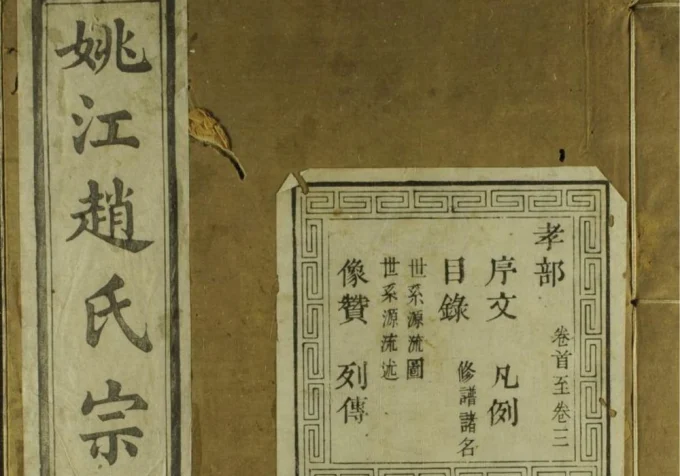 姚江趙氏宗
孝部 卷首至卷三
序文 凡例
目錄 修譜諸名
世系源流圖
世系源流述
像贊 列傳